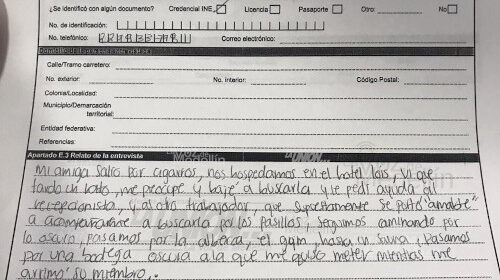 ¿Se identificó con algún documento? Credencial INE Licencia Pasaporte Otro: No
No. de identificación:
No. telefónico: Correo electrónico:
Calle/Tramo carretero:
No. exterior: No. interior: Código Postal:
Colonia/Localidad:
Municipio/Demarcación
territorial:
Entidad federativa:
Referencias:
Apartado E.3 Relato de la entrevista
Mi amiga salio por cigarros, nos hospedamos en el hotel Lois, vi que
tardo un rato, me precipe y baje a buscarla y le pedi ayuda al
recepcionista, y al otro trabajador, que supuestamente se porto "amable"
a acompañarme a buscarla por los pasillos, seguimos caminando por
lo oscuro, pasamos por la alberca, el gym, hasta un sauna, pasamos
por una bodega oscura a la que me quiso meter mientras me
arrimo su miembro.